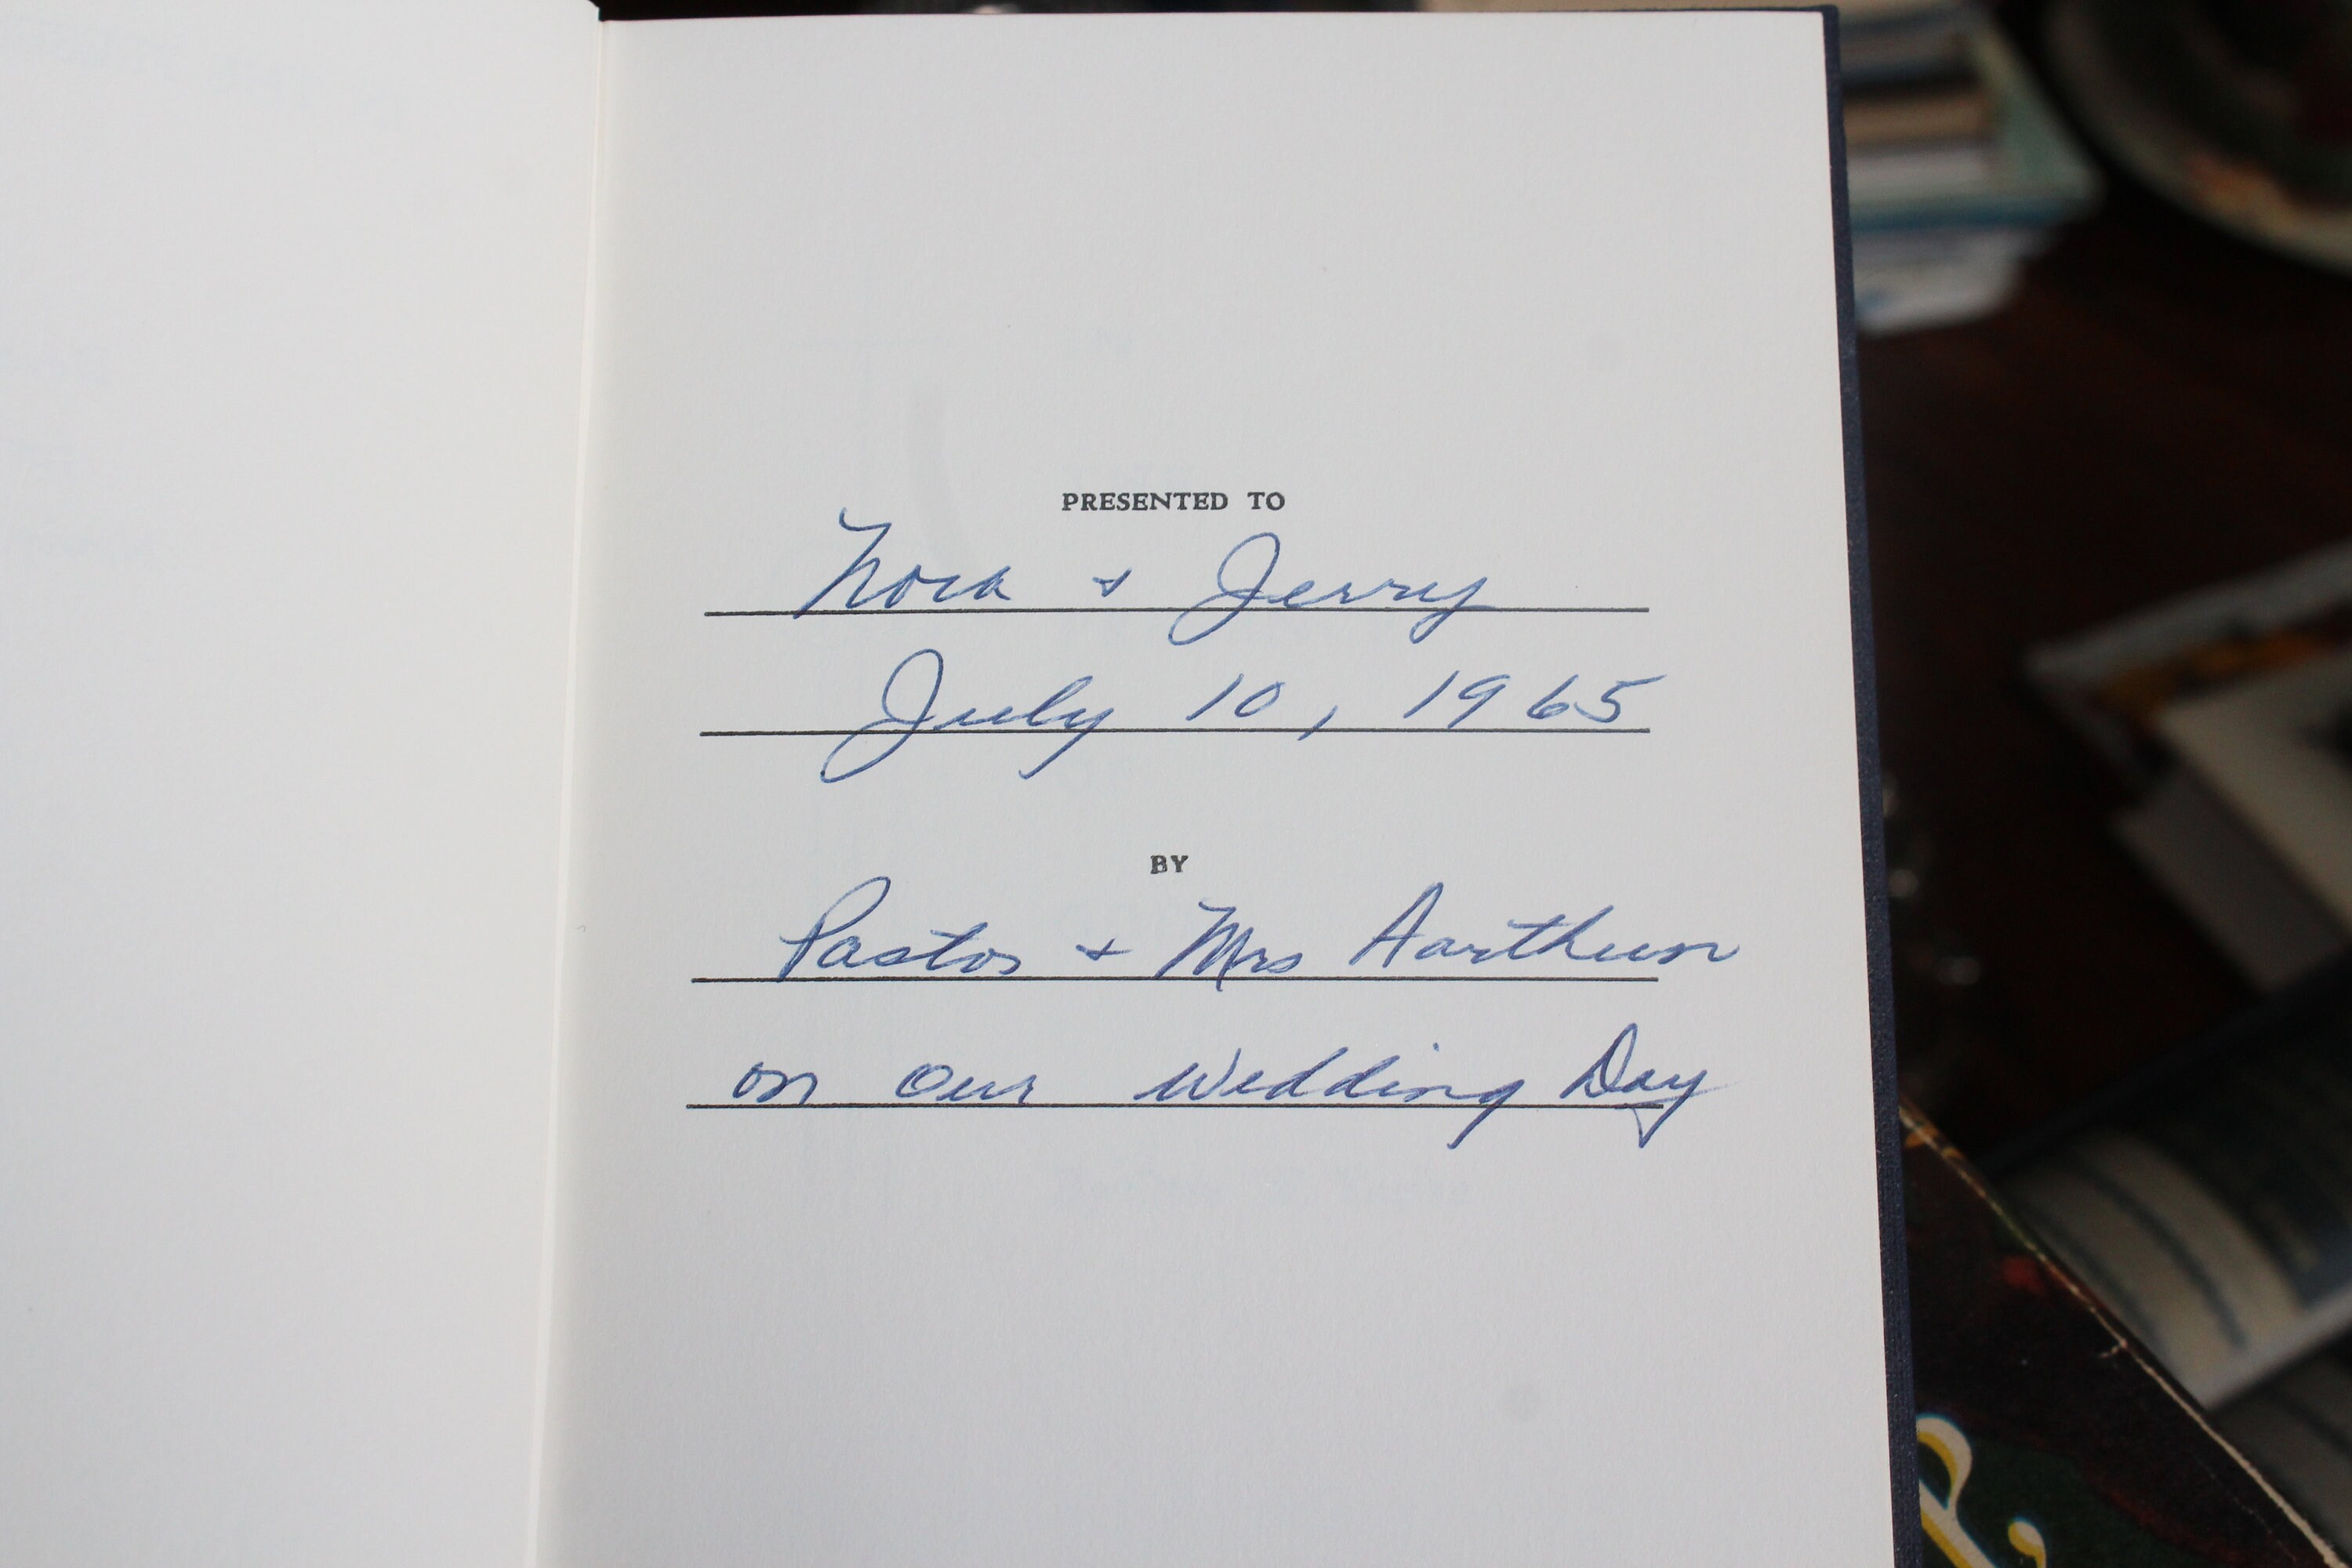 PRESENTED TO
Nora + Jerry
July 10, 1965
BY
Pastor + Mrs Aarthun
on our Wedding Day